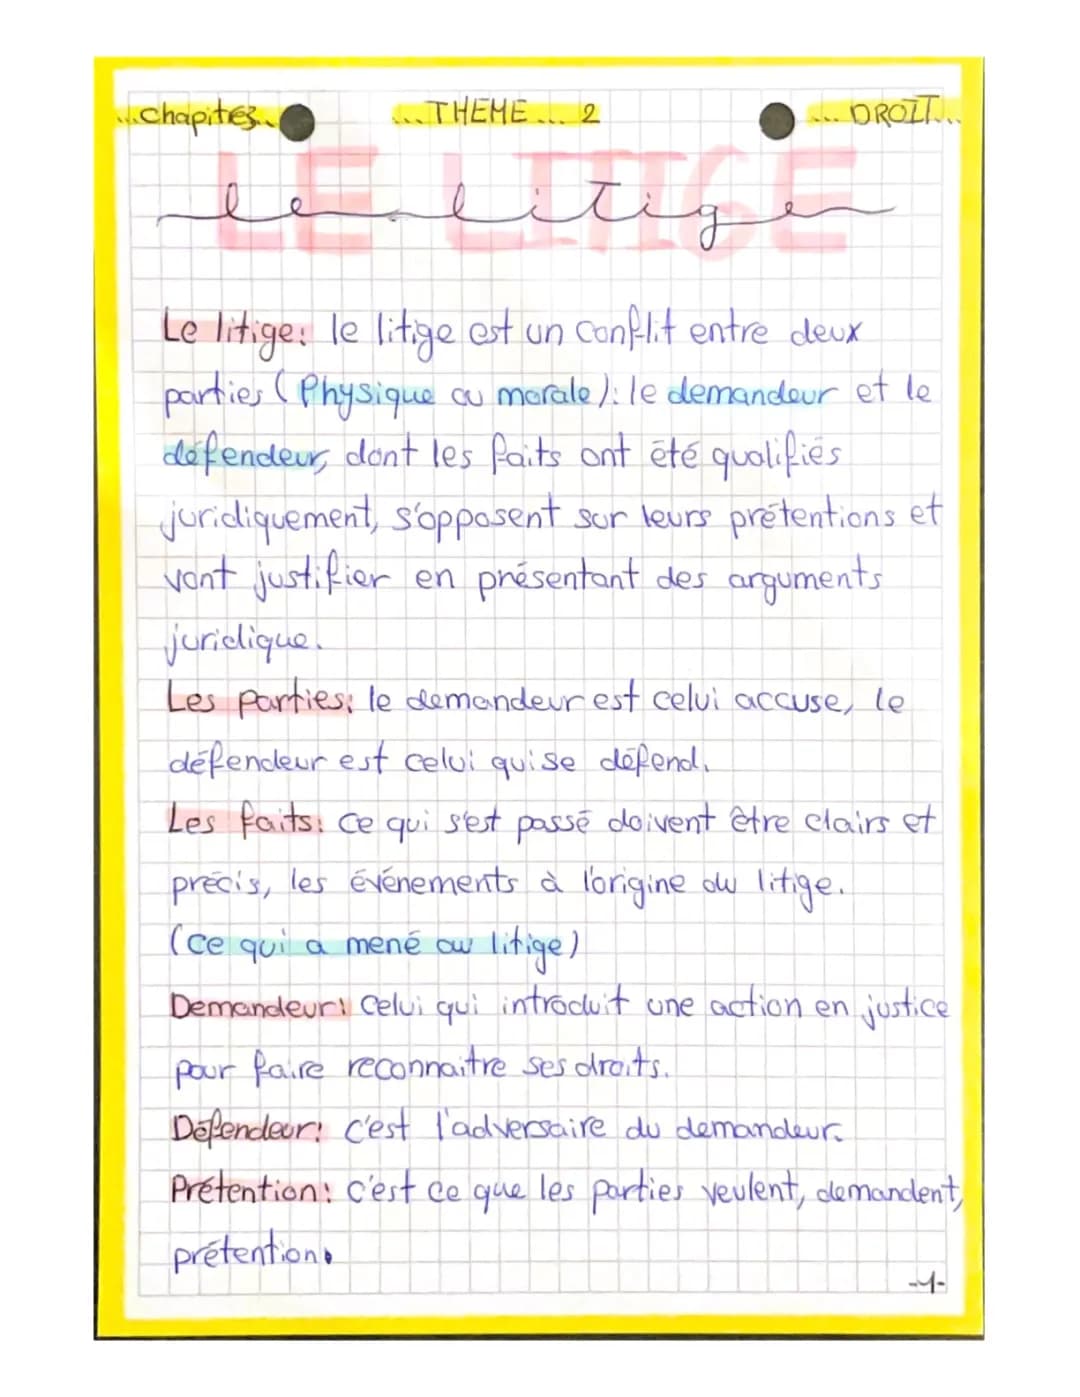 ...chapitre... ...THEME... 2 ...DROIT...
LE LITIGE
le litige
Le litige: le litige est un conflit entre deux
parties (Physique ou morale): le demandeur et le
défendeur, dont les faits ont été qualifiés
juridiquement, s'opposent sur leurs prétentions et
vont justifier en présentant des arguments
juridique.
Les parties: le demandeur est celui accuse, le
défendeur est celui qui se défend.
Les faits: ce qui s'est passé doivent être clairs et
précis, les événements à l'origine du litige.
(ce qui a mené au litige)
Demandeur: Celui qui introduit une action en justice
pour faire reconnaitre ses droits.
Défendeur: c'est l'adversaire du demandeur.
Prétention: c'est ce que les parties veulent, demandent,
prétention.
-1-